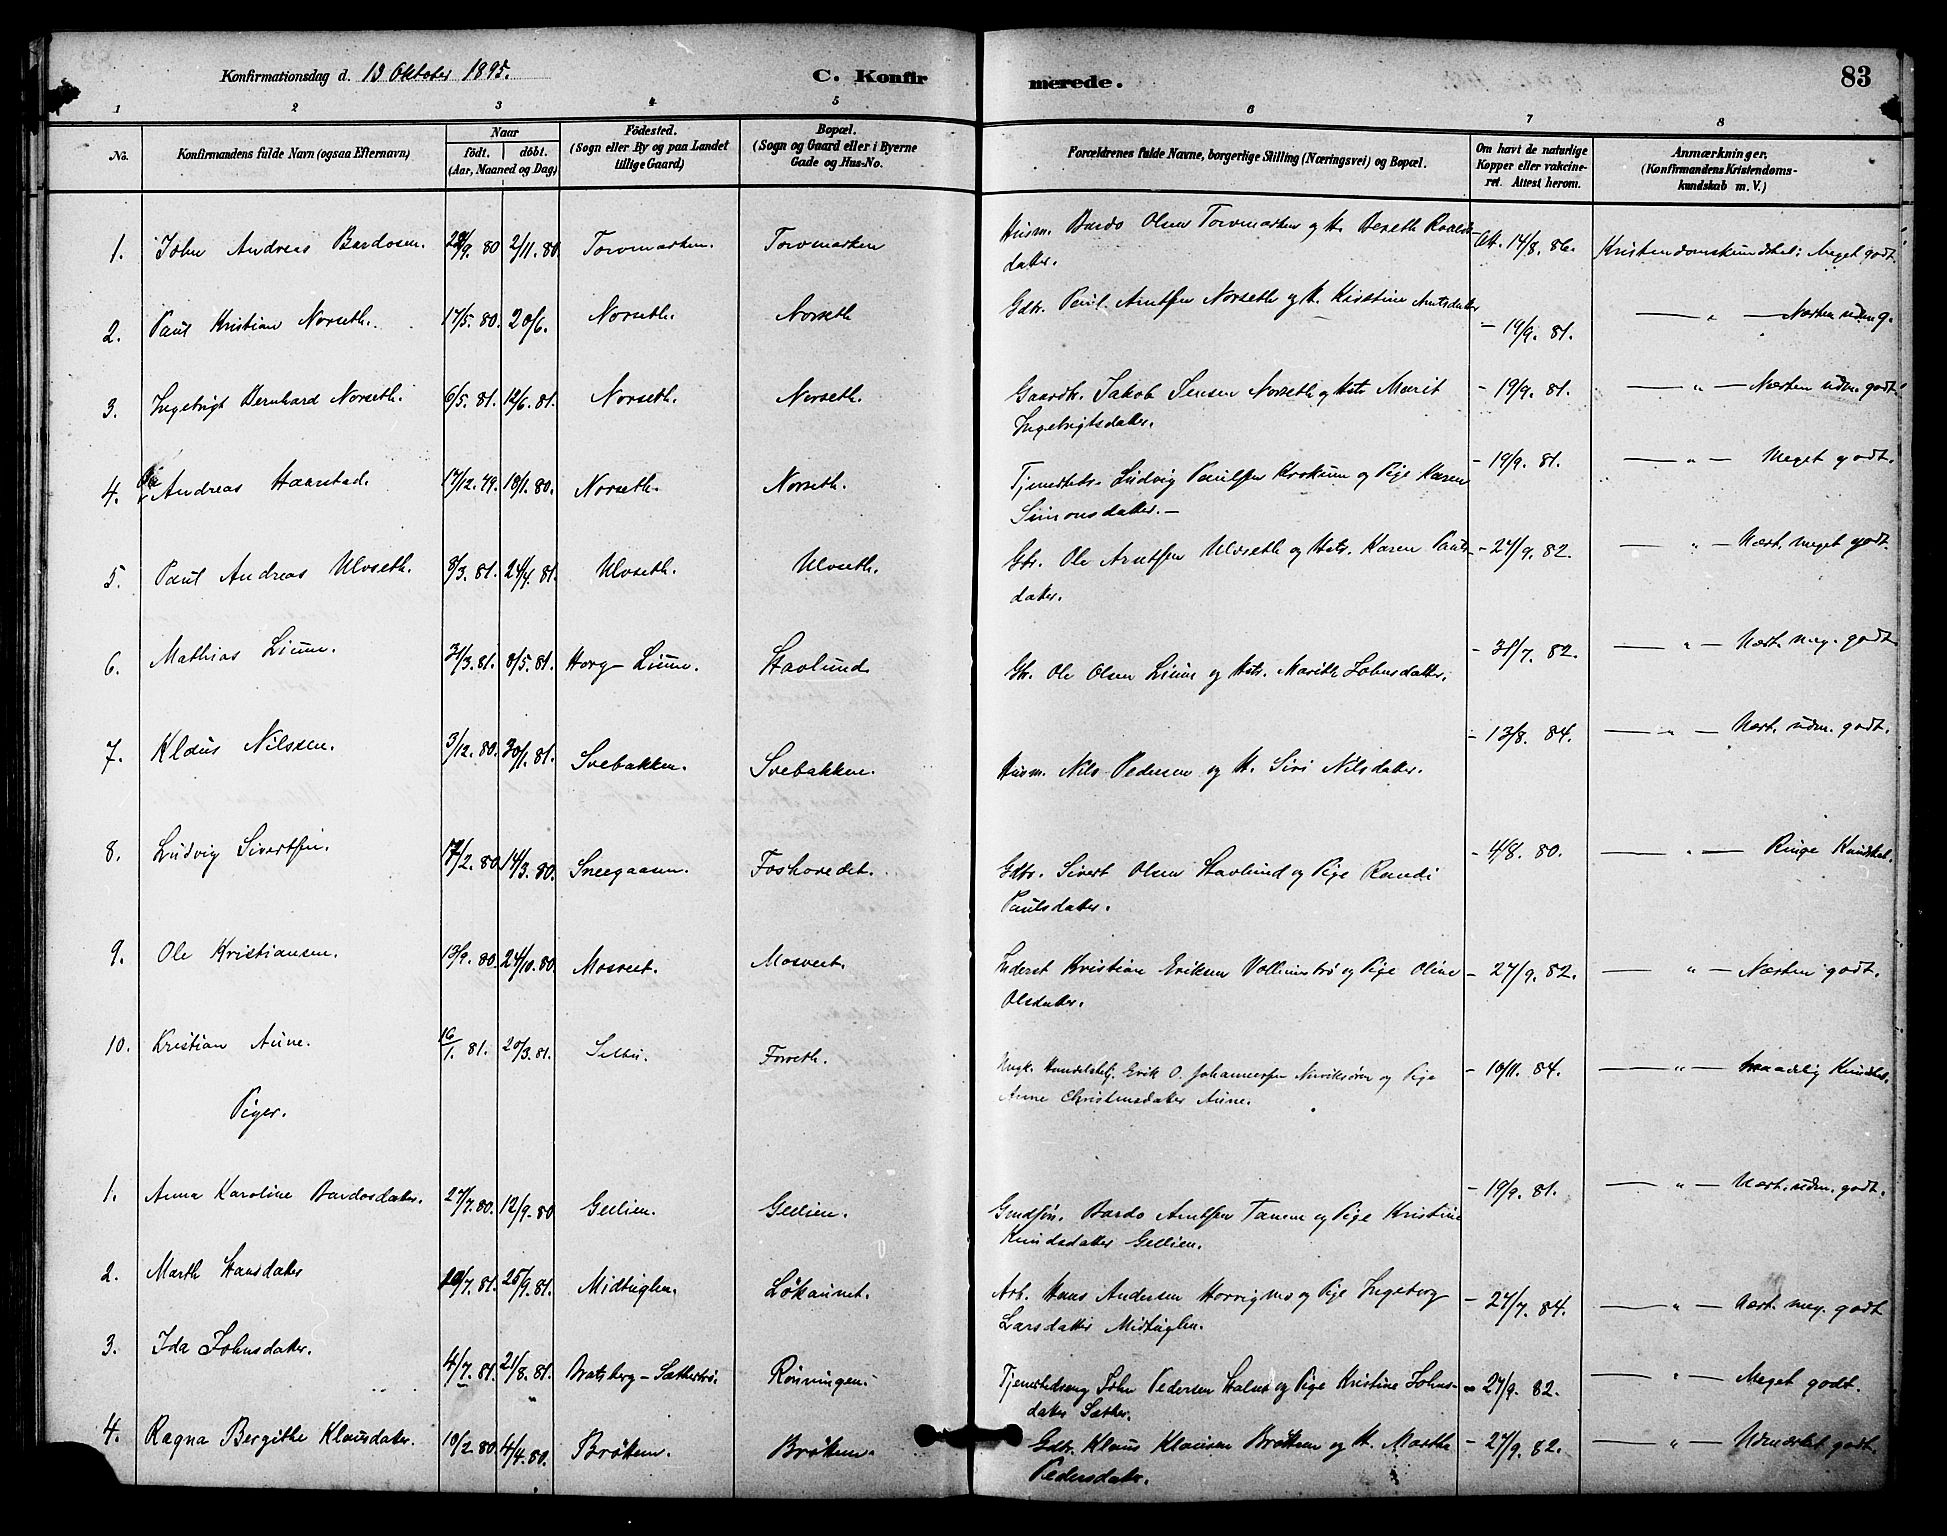 Konfirmationsdag d. 13 Oktober 1895. C. Konfirmerede. 83
1 2 3 4 5 6 7 8
No.
Konfirmandens fulde Navn (ogsaa Efternavn)
Naar
födt. döbt.
(Aar, Maaned og Dag)
Födested.
(Sogn eller By og paa Landet
tillige Gaard)
Bopæl.
(Sogn og Gaard eller i Byerne
Gade og Hus-No.
Forældrenes fulde Navne, borgerlige Stilling (Næringsvei) og Bopæl.
Om havt de naturlige
Kopper eller vakcine-
ret. Attest herom.
Anmærkninger.
(Konfirmandens Kristendoms-
kundskab m. V.)
1. John Andreas Bardosen. /9. 80 2/11. 80. Torvmarken. Torvmarken Husm. Bardo Olsen Torvmarken og H. Bereth
datter. Att. 14/8. 86. Kristendomskundskab: Meget godt.
2. Paul Kristian Norseth. 17/5. 80. 20/6. Norseth. Norseth Gdbr. Paul Arntsen Norseth og H. Kirstine Arntsdatter - 19/9. 81. — " — Næsten udm. g.
3. Ingebrigt Bernhard Norseth. 6/5. 81. 12/6. 81. Norseth. Norseth. Gaardbr. Jakob Jensen Norseth og Hstr. Marit
Ingebrigtsdatter. - 19/9. 81. — " — Næsten udm. godt.
4. Andreas Haarstad. 17/12. 79. 18/1. 80. Norseth. Norseth. Ludvig Paulsen Krokum og Pige Karen
Simonsdatter. — - 19/9. 81. — " — Meget godt.
5. Paul Andreas Ulvseth. 8/3. 81. 24/4. 81. Ulvseth. Ulvseth. Gbr. Ole Arntsen Ulvseth og Hstr. Karen Pauls-
datter. - 27/9. 82. — " — Næst. meget godt.
6. Mathias Lium. 31/3. 81. 8/5. 81. Horg - Lium. Stavlund Gbr. Ole Olsen Lium og Hstr. Marith Johnsdatter. - 31/7. 82. — " — Næst. meg. godt
7. Klaus Nilssen. 3/12. 80. 30/1. 81. Svebakken. Svebakken. Husm. Nils Pedersen og H. Siri Nilsdatter. - 13/8. 84. — " — Næst. udm. godt.
8. Ludvig Sivertsen. 17/2. 80. 14/3. 80. Sneegaasen. Foshovedet. Gdbr. Sivert Olsen Stavlund og Pige Randi
Paulsdatter. - 4/8. 80. — " — Ringe Kundskab.
9. Ole Kristiansen. 13/9. 80. 24/10. 80. Mosveet. Mosveet. Inderst Kristian Eriksen og Pige Oline
Olsdatter. - 27/9. 82. — " — Næsten godt.
10. Kristian Aune. 16/1. 81. 20/3. 81. Selbu. Forseth. Ungk. Handelsbetj. Erik O. Johannessen og Pige
Anne Christensdatter Aune. - 10/11. 84. — " — Maadelig Kundskab.
Piger.
1. Anna Karoline Bardosdatter. 27/7. 80. 12/9. 80 Gellien. Gellien. Gmdsön. Bardo Arntsen Tanem og Pige Kristine
Knudsdatter Gellien. - 19/9. 81. — " — Næst. udm. godt.
2. Marth Hansdatter /7. 81. 25/9. 81. Midtuglen. Lökaunet. Arb. Hans Andersen Horrigmo og Pige Ingeborg
Larsdatter Midtuglen. - 27/7. 84. — " — Næst. meg. godt
3. Ida Johnsdatter. 4/7. 81. 21/8. 81. Bratsberg - Rönningen. John Pedersen og Pige Kristine Johns-
datter Sæther. - 27/9. 82. — " — Meget godt.
4. Ragna Bergithe Klausdatter. 18/2. 80 4/4. 80. Bröttem. Bröttem. Gdbr. Klaus Klausen Bröttem og H. Marthe
Pedersdatter. - 27/9. 82. — " — Udmærket godt.